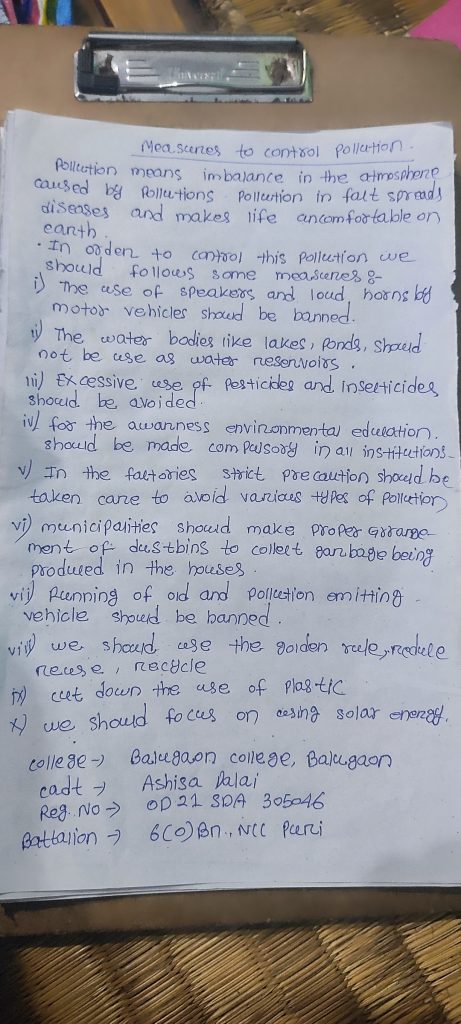 Universal
Measures to control pollution.
Pollution means imbalance in the atmosphere
caused by Pollutions. Pollution in fact spreads
diseases and makes life uncomfortable on
earth.
• In order to control this pollution we
should follows some measures :-
i) The use of speakers and loud, horns by
motor vehicles should be banned.
ii) The water bodies like lakes, ponds, should
not be use as water reservoirs.
iii) Excessive use of pesticides and insecticides
should be avoided.
iv) for the awarness environmental education.
should be made compulsory in all institutions-
v) In the factories strict precaution should be
taken care to avoid various types of pollution
vi) municipalities should make proper arrange-
ment of dustbins to collect garbage being
produced in the houses.
vii) Running of old and pollution emitting
vehicle should be banned.
viii) we should use the golden rule, reduce
reuse, recycle
ix) cut down the use of plastic
x) we should focus on using solar energy.
college → Balugaon college, Balugaon
cadt → Ashisa Palai
Reg. No → OD 21 SDA 305046
Battalion → 6(O) Bn., NCC Puri